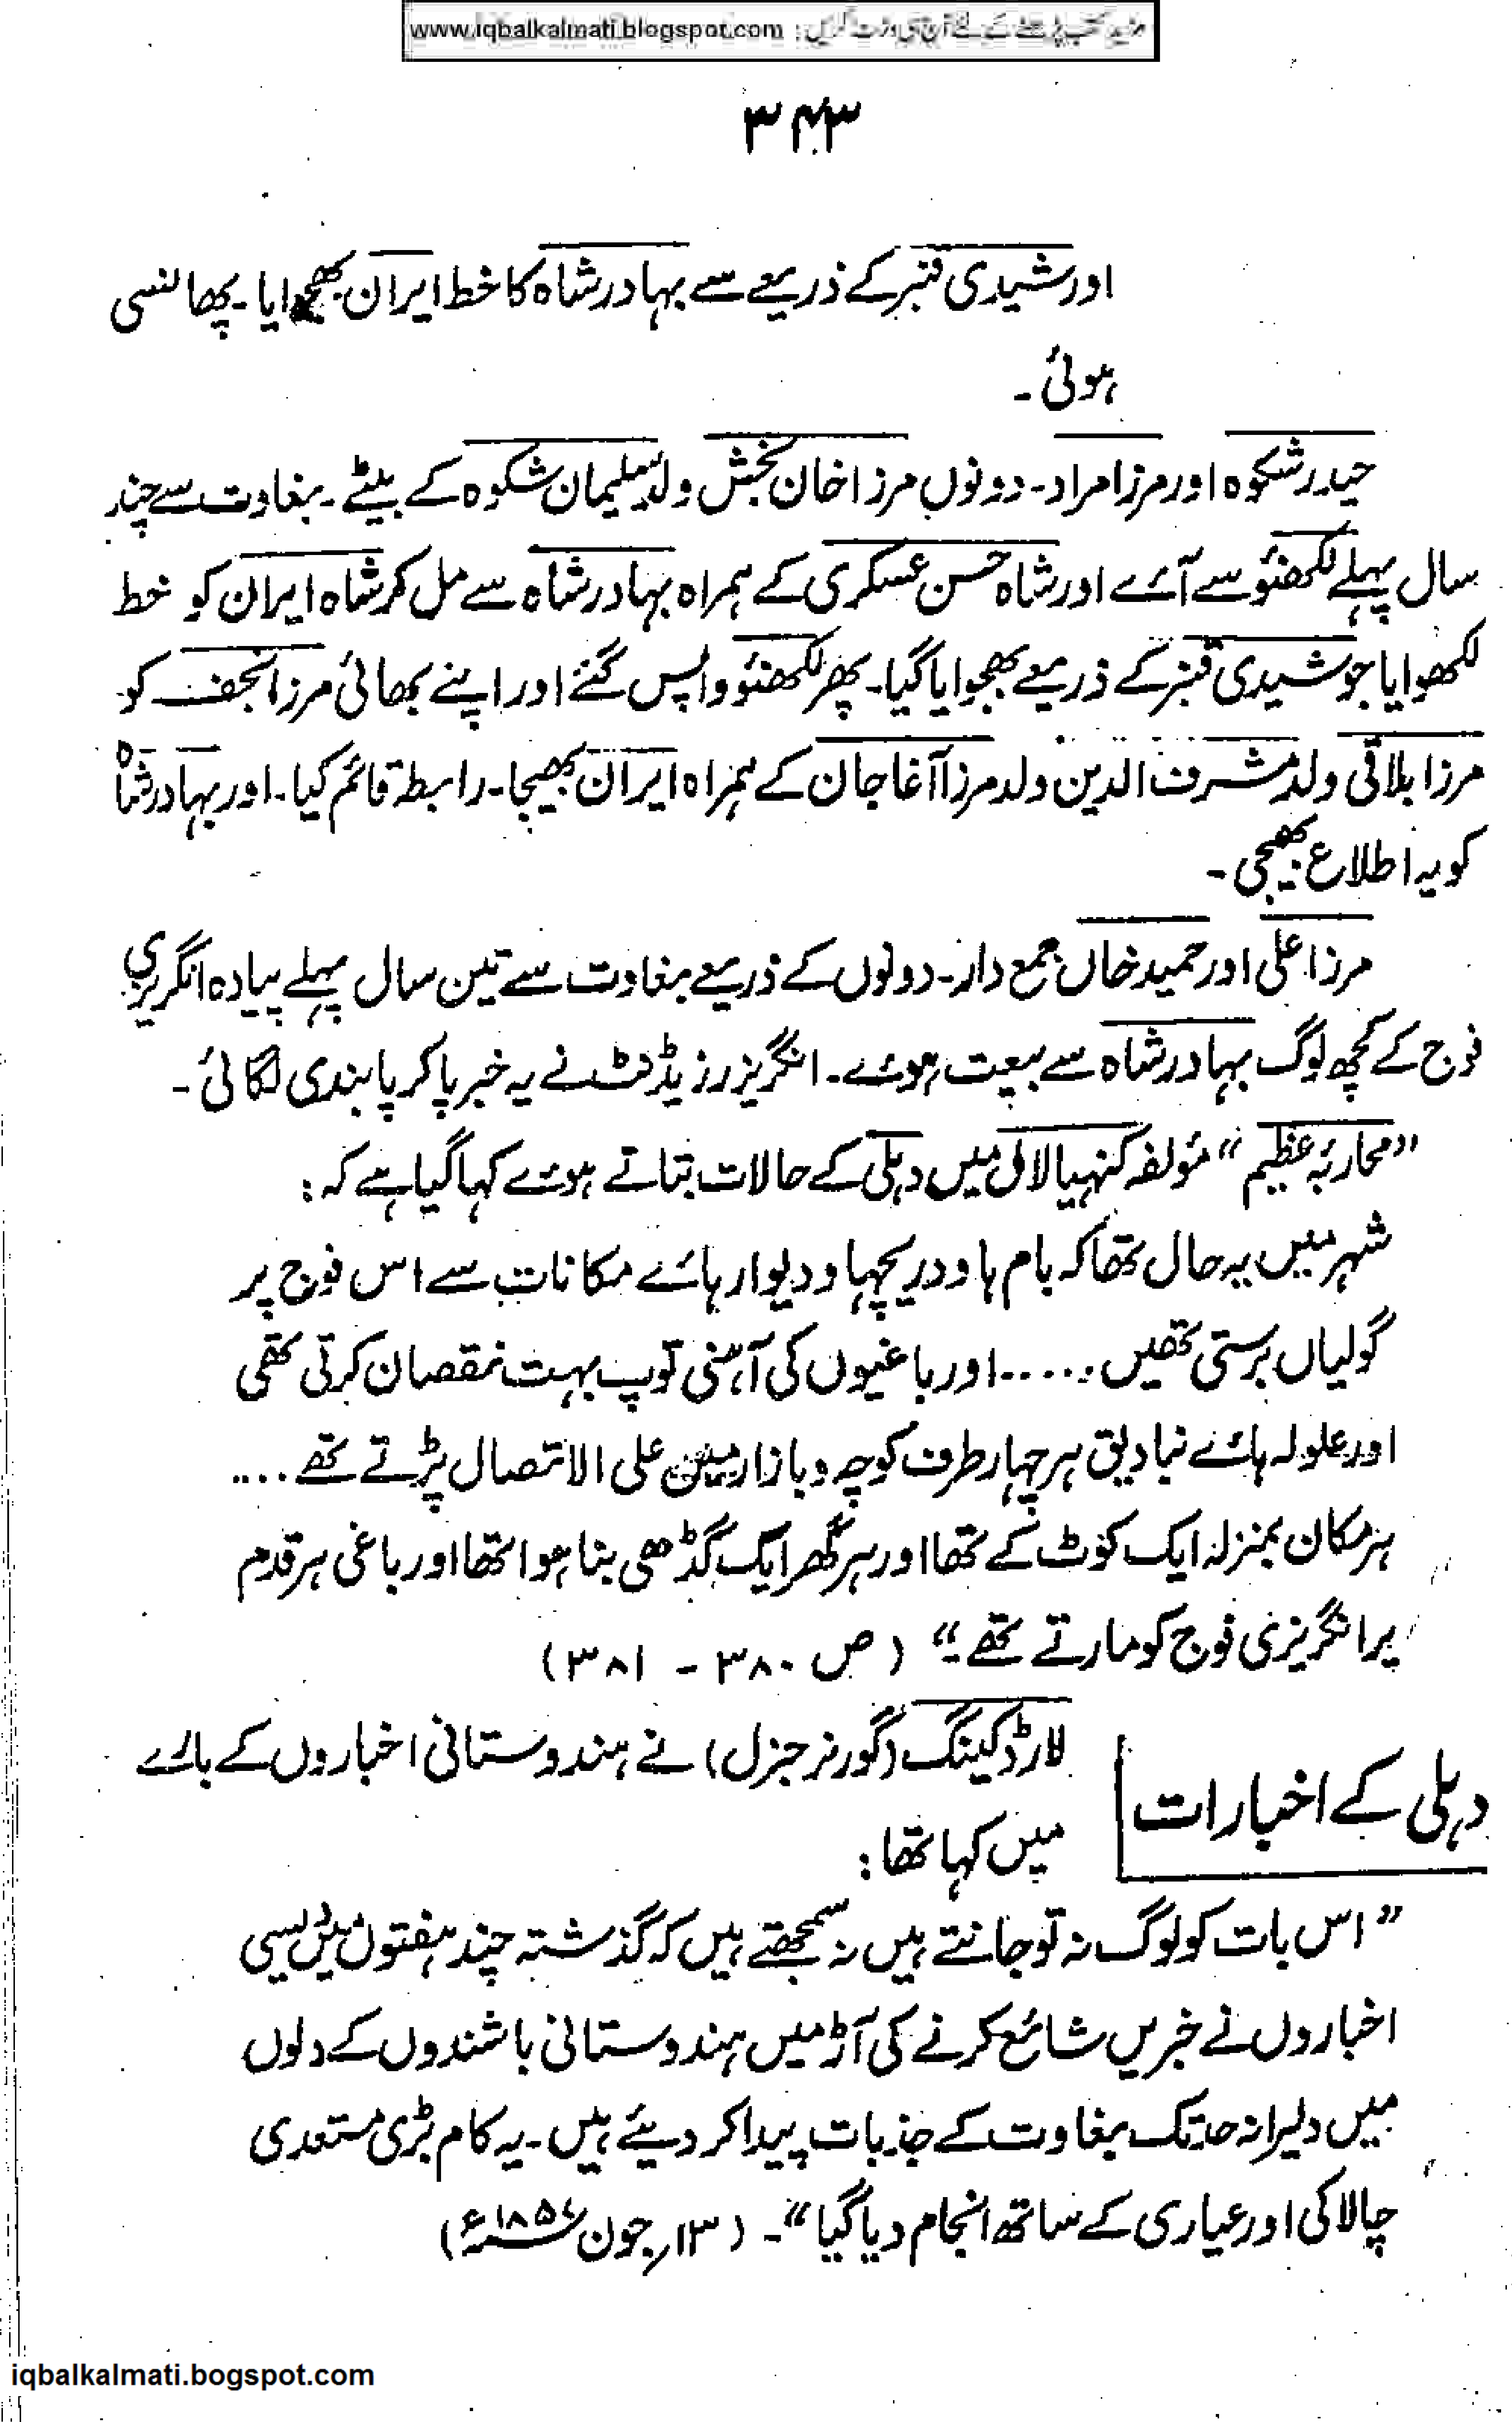 مزید کتب پڑھنے کے لئے آج ہی وزٹ کریں : www.iqbalkalmati.blogspot.com
۳۴۳
اور شیدی قنبر کے ذریعے سے بہادر شاہ کا خط ایران بھجوایا۔ پھانسی
ہوئی۔
حیدر شکوہ اور مرزا مراد۔ دونوں مرزا خان بخش ولد سلیمان شکوہ کے بیٹے۔ بغاوت سے چند
سال پہلے لکھنؤ سے آئے اور شاہ حسن عسکری کے ہمراہ بہادر شاہ سے مل کر شاہ ایران کو خط
لکھوایا جو شیدی قنبر کے ذریعے بھجوایا گیا۔ پھر لکھنؤ واپس گئے اور اپنے بھائی مرزا نجف کو
مرزا بلاقی ولد مشرف الدین ولد مرزا آغا جان کے ہمراہ ایران بھیجا۔ رابطہ قائم کیا۔ اور بہادر شاہ
کو یہ اطلاع بھیجی۔
مرزا علی اور حمید خاں جمع دار۔ دونوں کے ذریعے بغاوت سے تین سال پہلے پیادہ انگریزی
فوج کے کچھ لوگ بہادر شاہ سے بیعت ہوئے۔ انگریز رزیڈنٹ نے یہ خبر پا کر پابندی لگائی۔
"محاربۂ عظیم" مؤلفہ کنہیا لال میں دہلی کے حالات بتاتے ہوئے کہا گیا ہے کہ :
شہر میں یہ حال تھا کہ بام ہا و دریچہا و دیوار ہائے مکانات سے اس فوج پر
گولیاں برستی تھیں ..... اور باغیوں کی آہنی توپ بہت نقصان کرتی تھی
اور علولہ ہائے نبادیق ہر چہار طرف کوچہ و بازار میں علی الاتصال پڑتے تھے ....
ہر مکان بمنزلہ ایک کوٹ کے تھا اور ہر گھر ایک گڈھی بنا ہوا تھا اور باغی ہر قدم
پر انگریزی فوج کو مارتے تھے۔" ( ص ۳۸۰ - ۳۸۱ )
دہلی کے اخبارات
لارڈ کیننگ (گورنر جنرل) نے ہندوستانی اخباروں کے بارے
میں کہا تھا :
"اس بات کو لوگ نہ تو جانتے ہیں نہ سمجھتے ہیں کہ گذشتہ چند ہفتوں میں دیسی
اخباروں نے خبریں شائع کرنے کی آڑ میں ہندوستانی باشندوں کے دلوں
میں دلیرانہ حد تک بغاوت کے جذبات پیدا کر دیئے ہیں۔ یہ کام بڑی مستعدی
چالاکی اور عیاری کے ساتھ انجام دیا گیا"۔ ( ۱۳؍ جون ۱۸۵۷ء )
iqbalkalmati.bogspot.com